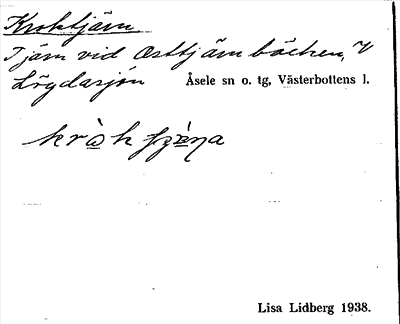 Kroktjärn
Tjärn vid Osttjärnbäcken, V
Lögdasjön Åsele sn o. tg, Västerbottens l.
Lisa Lidberg 1938.